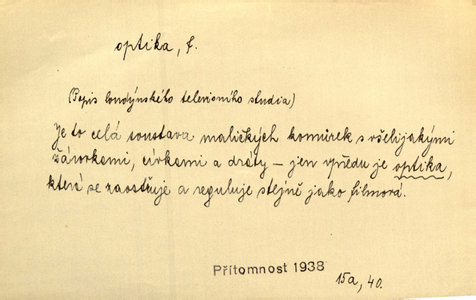 optika, f.
(Popis londýnského televisního studia)
Je to celá soustava maličkých komůrek s všelijakými
žárovkami, cívkami a dráty – jen vpředu je optika,
která se zaostřuje a reguluje stejně jako filmová.
Přítomnost 1938
15a, 40.